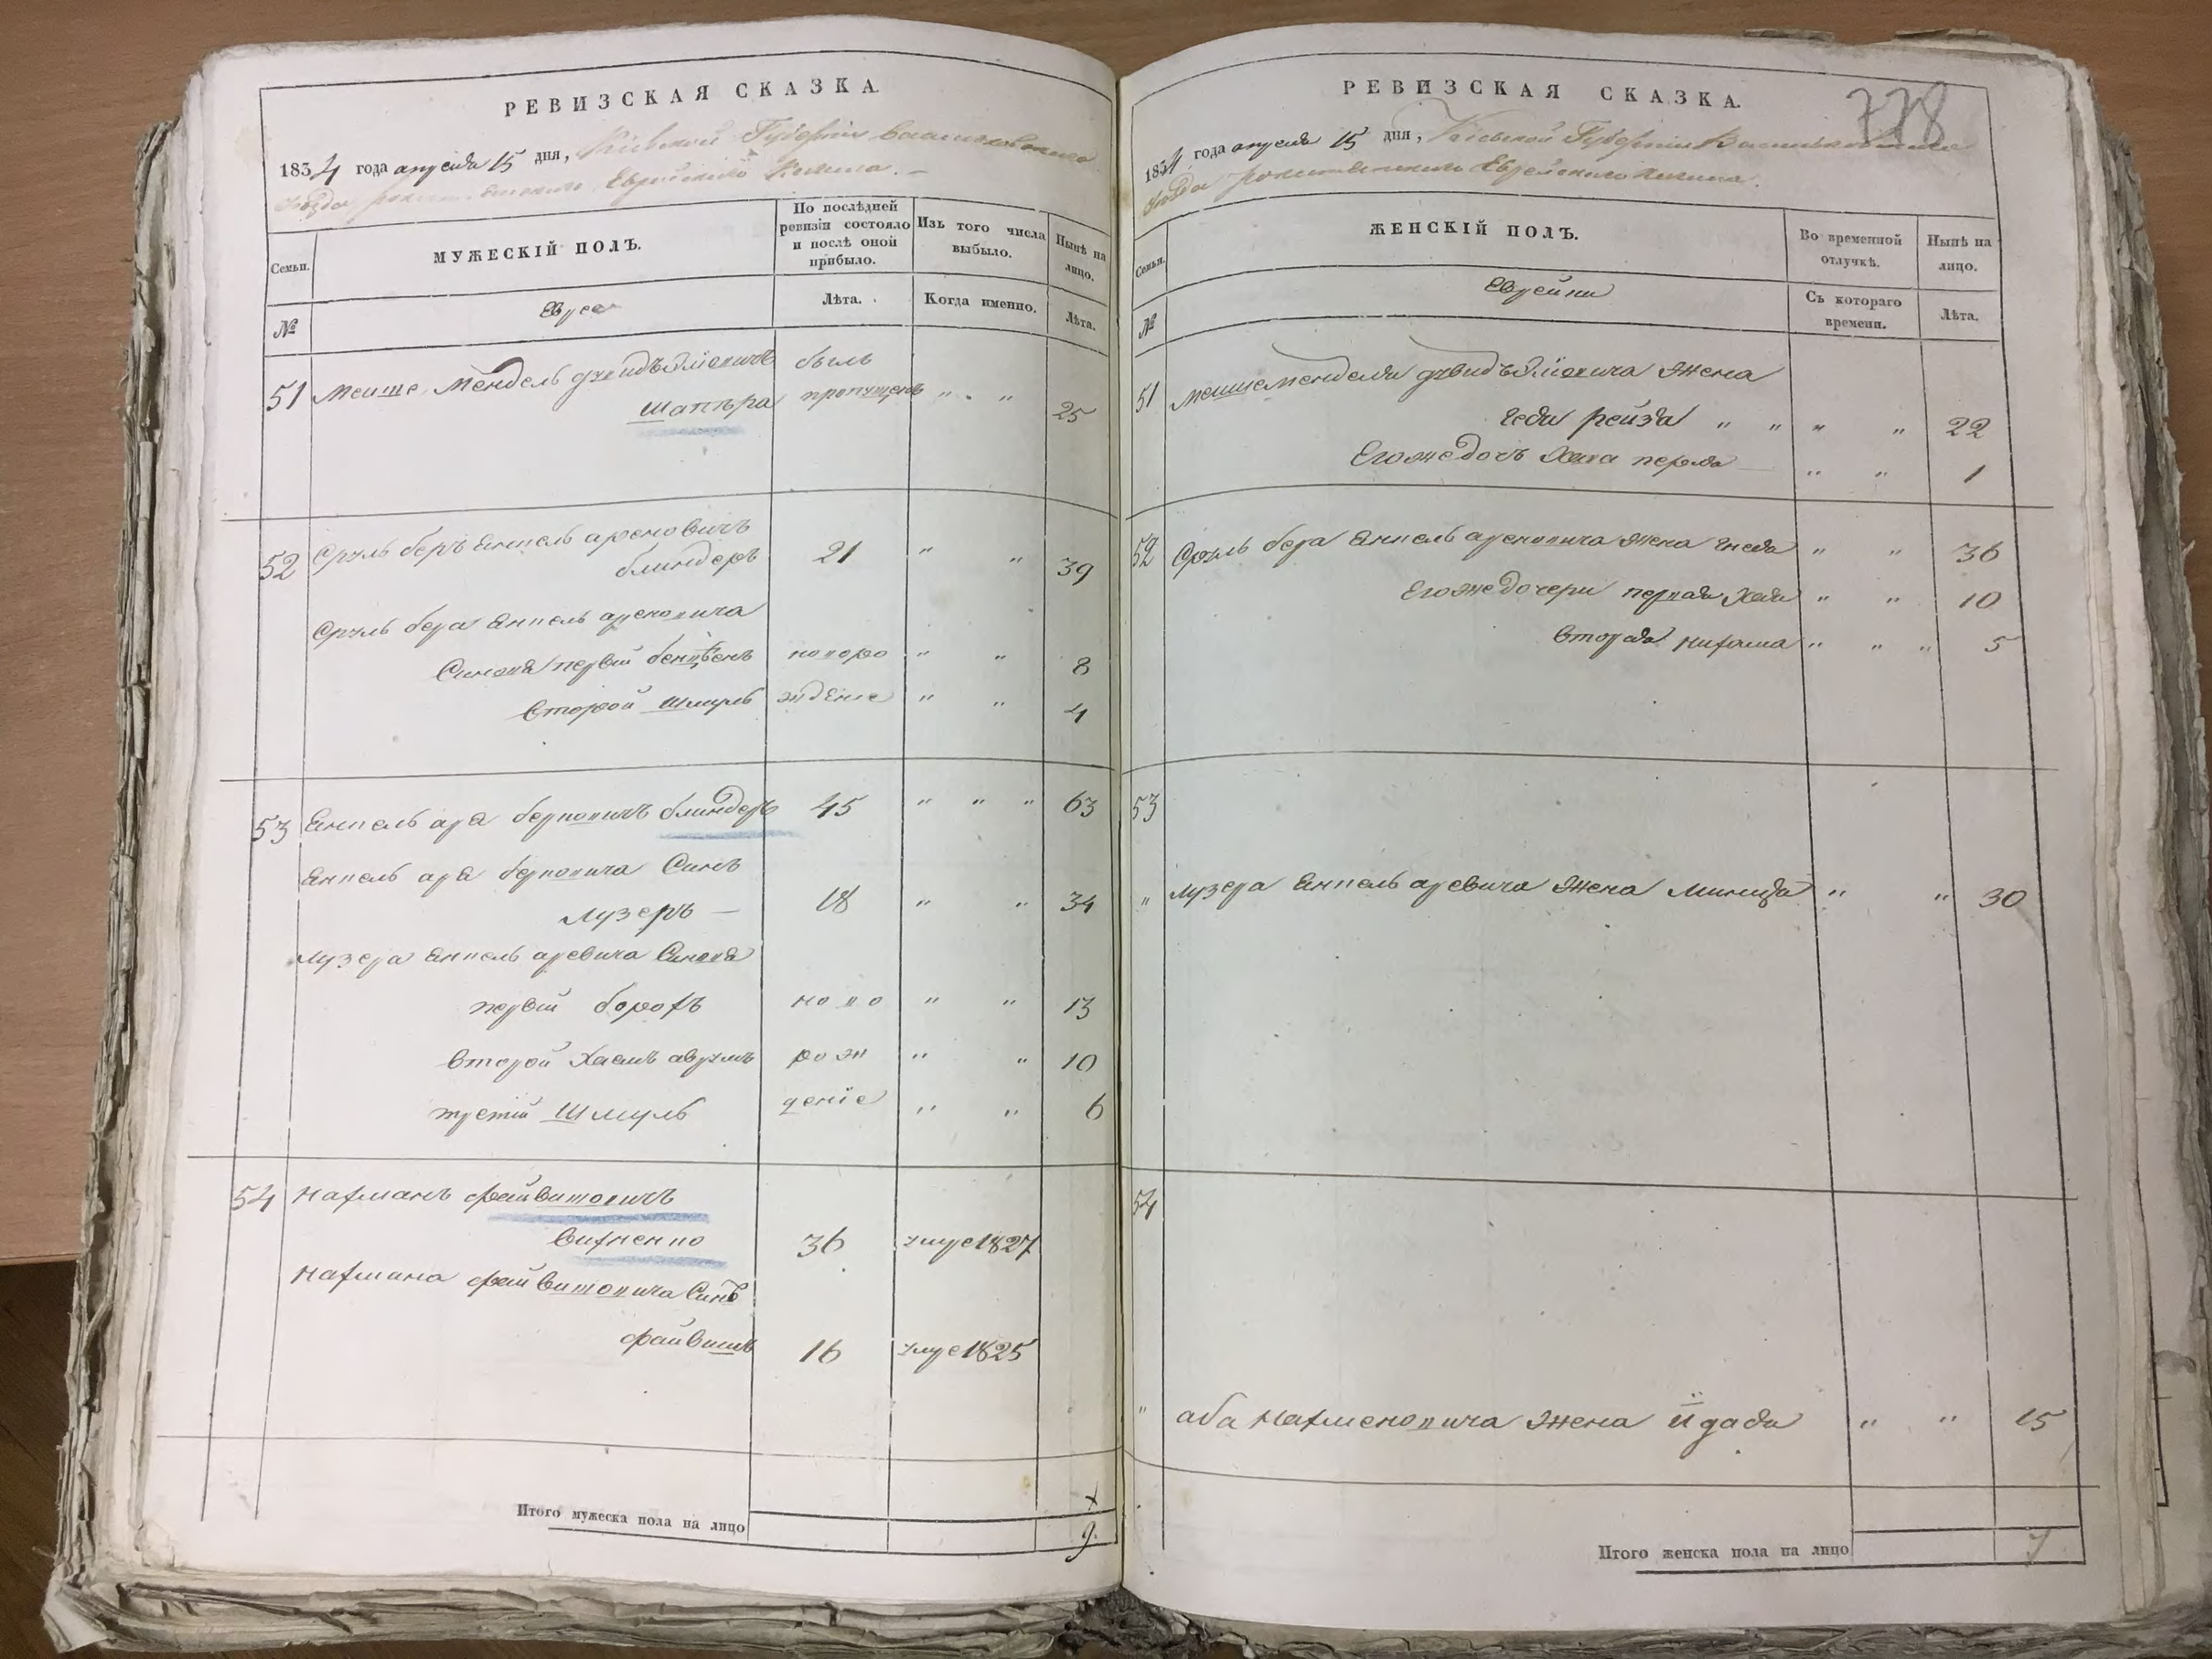 РЕВИЗСКАЯ СКАЗКА.
1834 года апреля 15 дня, Киевской Губернии Васильковского
уезда Еврейского Кагала.
Семьи.
МУЖЕСКІЙ ПОЛЪ.
По послѣдней ревизіи состояло и послѣ оной прибыло.
Изъ того числа выбыло.
Нынѣ на лицо.
№
Евреи
Лѣта.
Когда именно.
Лѣта.
51 Мошко Мендель
былъ
Шапъра пропущенъ " " 25
52 Сруль беръ Янкель ароновичъ
блиндеръ 21 " " 39
Сруль бера Янкель ароновича
Синовя первый новоро " " 8
Второй Шмуль ждение " " 4
53 Янкель аре берковичъ блиндеръ 45 " " " 63
Янкель аре берковича Синъ
лузеръ — 18 " " 34
лузера Янкель аревича Синовя
первый борохъ ново " " 13
Второй Хаимъ аврумъ рож " " 10
третій Шмуль деніе " " 6
54 Нахманъ файвишовичъ
36 умре 1827
Нахмана файвишовича Синъ
файвишъ 16 умре 1825
Итого мужеска пола на лицо 9.
РЕВИЗСКАЯ СКАЗКА.
778
1834 года апреля 15 дня, Киевской Губернии Васильковского
уезда Еврейского Кагала.
Семьи.
ЖЕНСКІЙ ПОЛЪ.
Во временной отлучкѣ.
Нынѣ на лицо.
№
Еврейки
Съ котораго времени.
Лѣта.
51 Мошко Менделя жена
рейза " " " " 22
Его же дочь Хана перла " " 1
52 Сруль бера Янкель ароновича жена " " 36
Его же дочери первая Хая " " 10
Вторая " " " 5
53
" лузера Янкель аревича жена " " 30
54
" аба Нахмановича жена " " 15
Итого женска пола на лицо 7